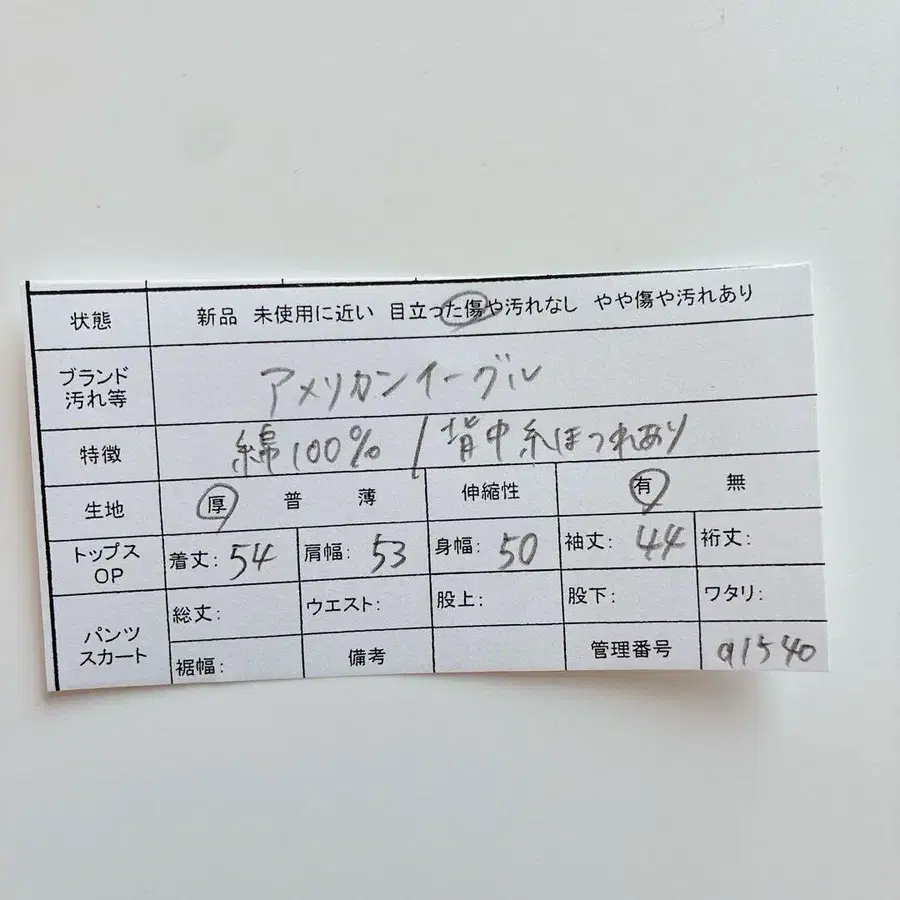 状態 新品 未使用に近い 目立った傷や汚れなし やや傷や汚れあり
ブランド アメリカンイーグル
汚れ等
特徴 綿100% / 背中糸ほつれあり
生地 厚 普 薄 伸縮性 有 無
トップス 着丈: 54 肩幅: 53 身幅: 50 袖丈: 44 裄丈:
OP
総丈: ウエスト: 股上: 股下: ワタリ:
パンツ
スカート
裾幅: 備考 管理番号 a1540